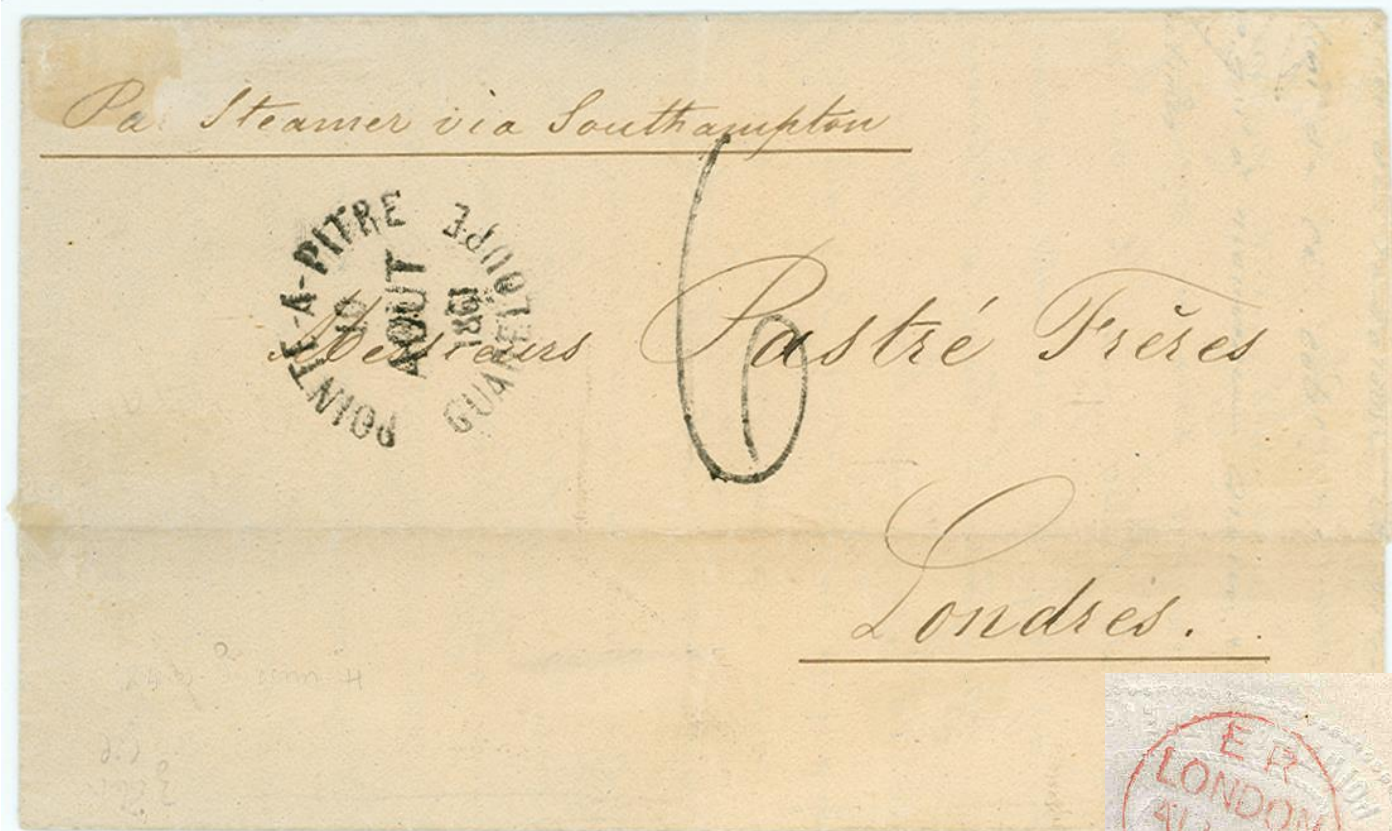 Par Steamer via Southampton
POINTE-A-PITRE
GUADELOUPE
10
AOUT
1861
6
Messieurs Pastré Frères
Londres.
E R
LONDON